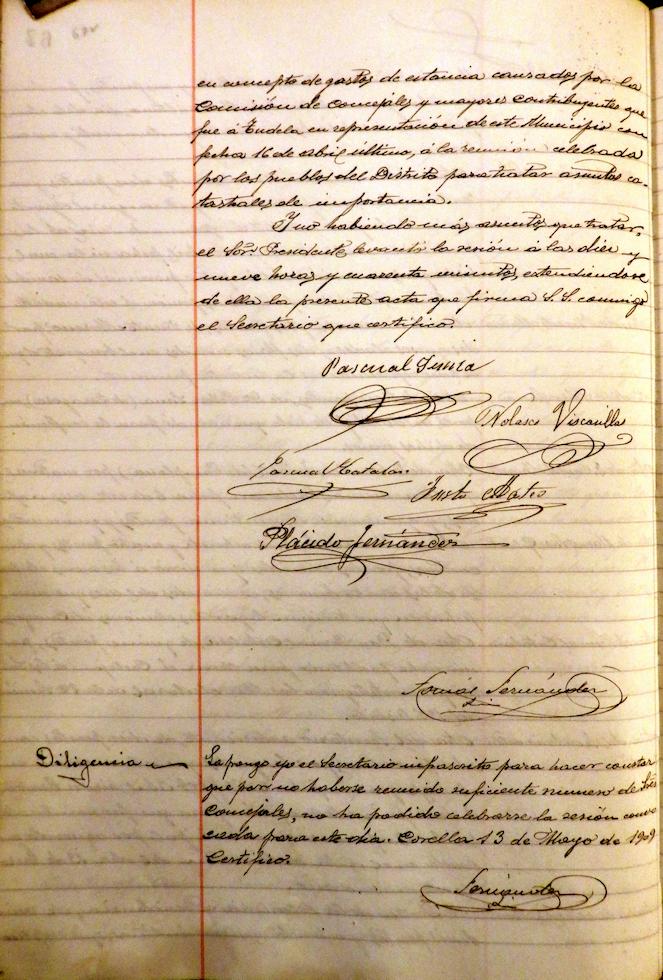 en concepto de gastos de estancia causados por la
Comisión de concejales y mayores contribuyentes que
fue á Tudela en representación de este Municipio con
fecha 16 de abril último, á la reunión celebrada
por los pueblos del Distrito para tratar asuntos ca-
tastrales de importancia.
Y no habiendo más asuntos que tratar,
el Sor. Presidente levantó la sesión á las diez y
nueve horas y cuarenta minutos, extendiéndose
de ella la presente acta que firma S.S. conmigo
el Secretario que certifico.
Pascual
Nolasco
Pascual Catalán
Justo Mateo
Plácido Fernández
Tomás Fernández
Diligencia
La pongo yo el Secretario infrascrito para hacer constar
que por no haberse reunido suficiente número de Sres
Concejales, no ha podido celebrarse la sesión convo
cada para este día. Corella 13 de Mayo de 1909
Certifico.
Fernández